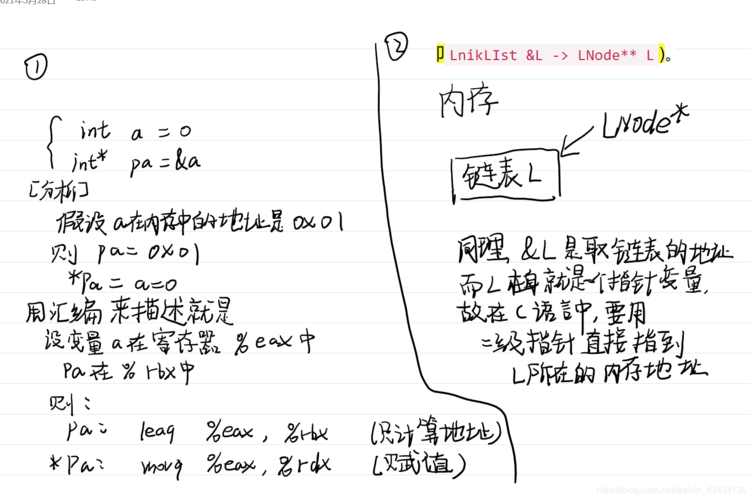 2021年5月28日
①
int a = 0
int* pa = &a
[分析]
假设a在内存中的地址是0x01
则 pa = 0x01
*Pa = a = 0
用汇编来描述就是
设变量a在寄存器 %eax中
Pa在 %rbx中
则:
Pa: leaq %eax, %rbx (只计算地址)
*Pa: movq %eax, %rdx (只赋值)
②
LnikLIst &L -> LNode** L)。
内存
LNode*
链表L
同理, &L是取链表的地址
而L本身就是一个指针变量,
故在C语言中,要用
二级指针直接指到
L所在的内存地址
https://blog.csdn.net/weixin_43434136